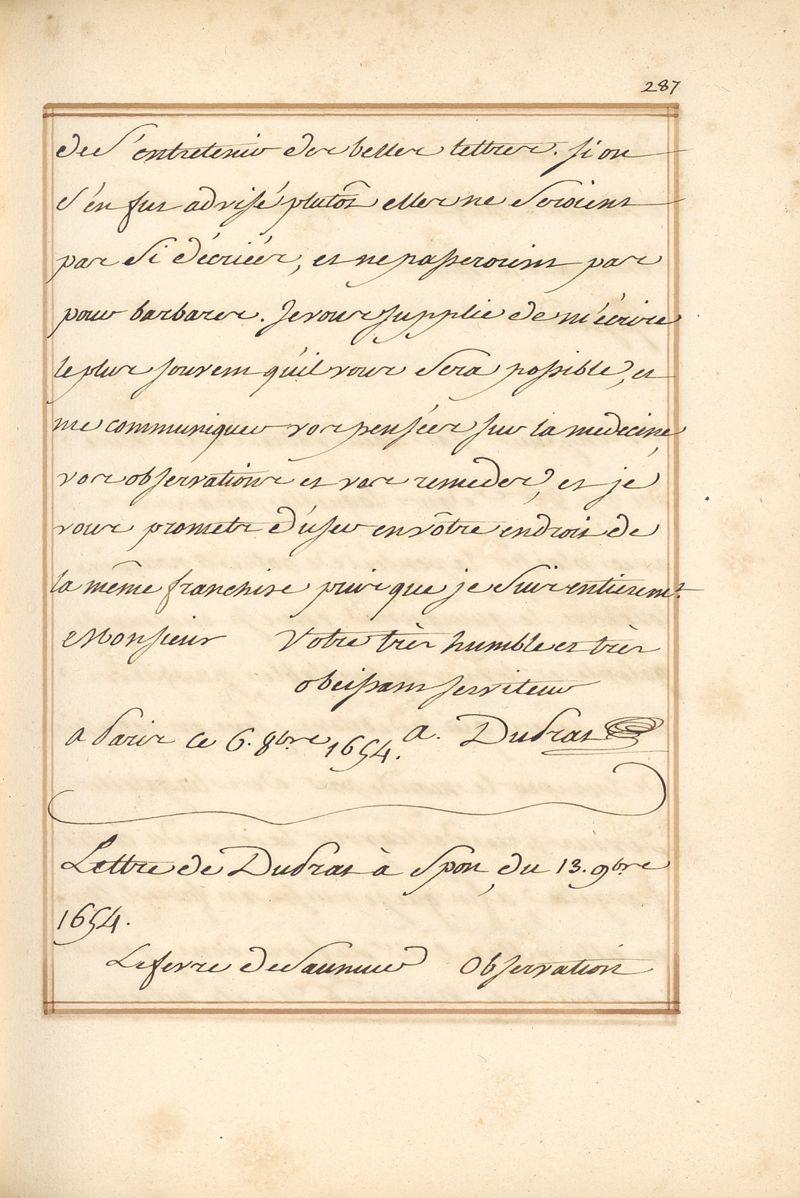 287
de s'entretenir des belles lettres. si on
s'en fut advisé plutost elles ne seroient
pas si décriées, et ne passeroient pas
pour barbares. Je vous supplie de m'écrire
le plus souvent qu'il vous sera possible, et
me communiquer vos pensées sur la medecine,
vos observations et vos remedes, et je
vous promets d'user en vôtre endroit de
la même franchise puis que je suis entierem.t
Monsieur Votre très humble et très
obeissant serviteur
A Paris ce 6. 8bre 1654. a. Dudras
Lettre de Dudras à Spon, du 13. 9bre
1654.
Lefevre de Saumur Observation